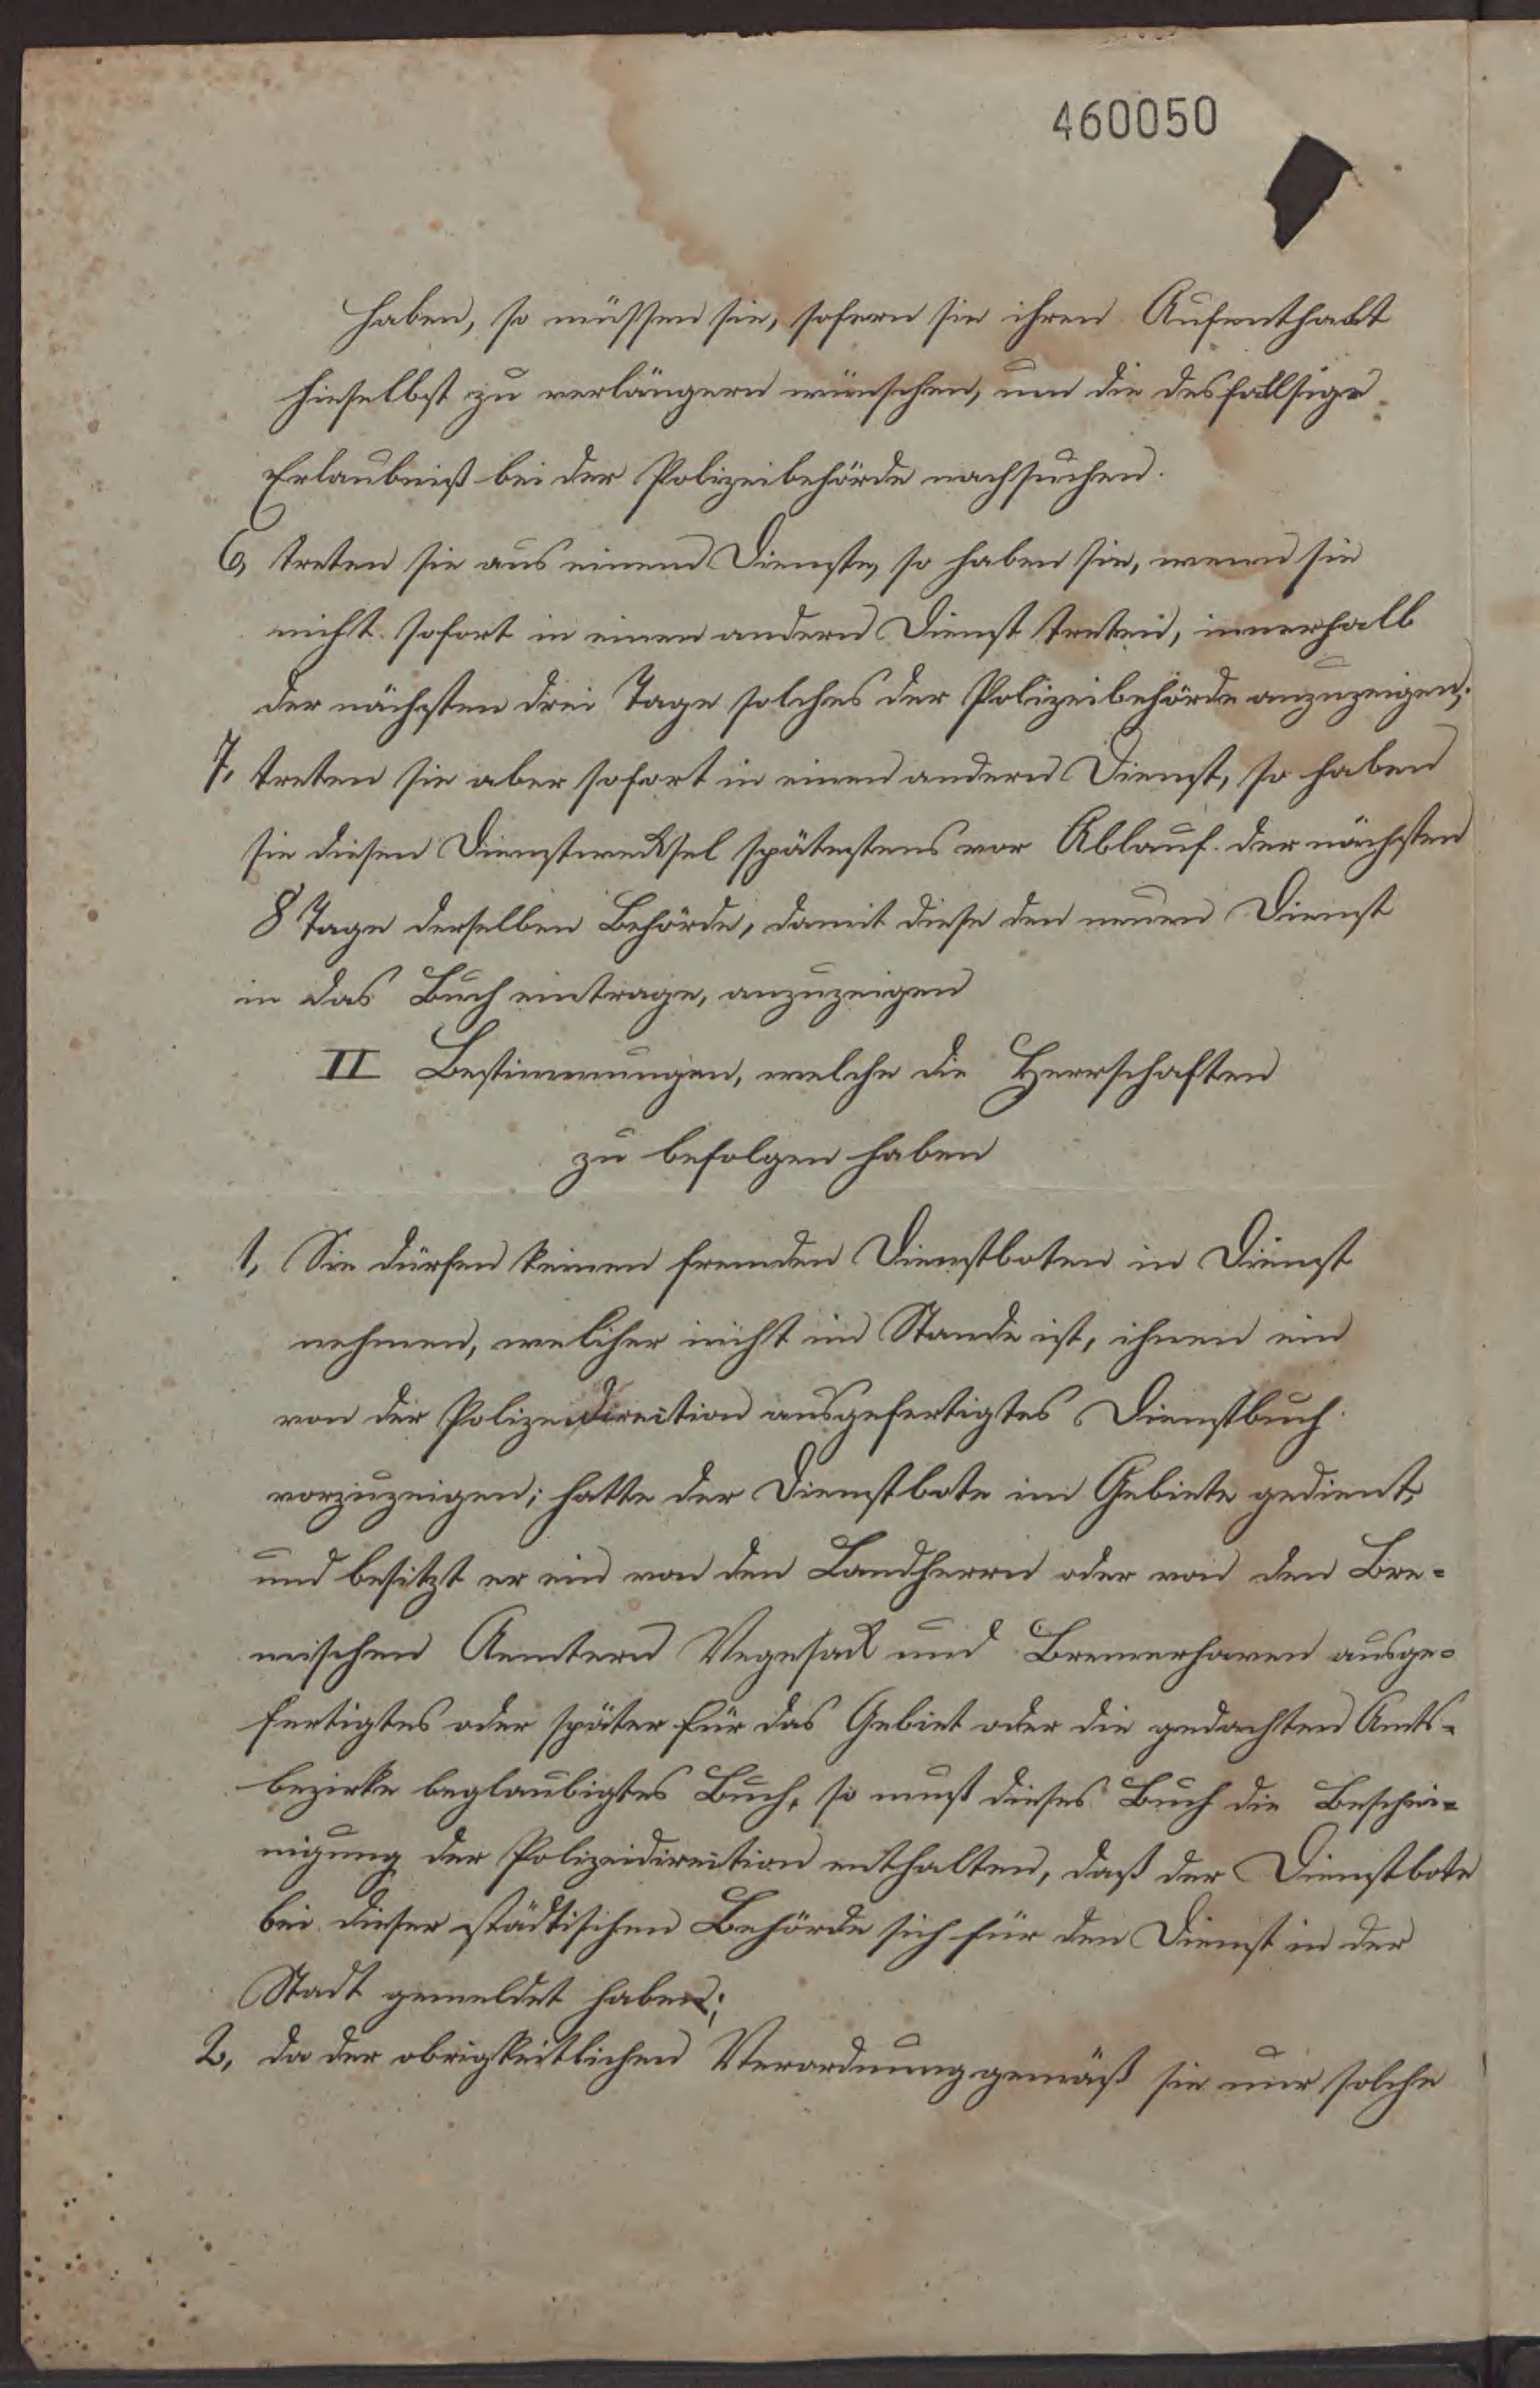 460050
haben, so müssen sie, sofern sie ihren Aufenthalt
hieselbst zu verlängern wünschen, um die desfallsige
Erlaubniß bei der Polizeibehörde nachsuchen.
6, treten sie aus einem Dienste, so haben sie, wenn sie
nicht sofort in einen andern Dienst treten, innerhalb
der nächsten drei Tage solches der Polizeibehörde anzuzeigen;
7, treten sie aber sofort in einen andern Dienst, so haben
sie diesen Dienstwechsel spätestens vor Ablauf der nächsten
8 Tage derselben Behörde, damit diese den neuen Dienst
in das Buch eintrage, anzuzeigen
II Bestimmungen, welche die Herrschaften
zu befolgen haben
1, Sie dürfen keinen fremden Dienstboten in Dienst
nehmen, welcher nicht im Stande ist, ihnen ein
von der Polizeidirection ausgefertigtes Dienstbuch
vorzuzeigen; hatte der Dienstbote im Gebiete gedient,
und besitzt er ein von den Landherrn oder von den Bre=
mischen Aemtern Vegesack und Bremerhaven ausge=
fertigtes oder später für das Gebiet oder die gedachten Amts=
bezirke beglaubigtes Buch, so muß dieses Buch die Beschei=
nigung der Polizeidirection enthalten, daß der Dienstbote
bei dieser städtischen Behörde sich für den Dienst in der
Stadt gemeldet haben;
2, da der obrigkeitlichen Verordnung gemäß sie nur solche